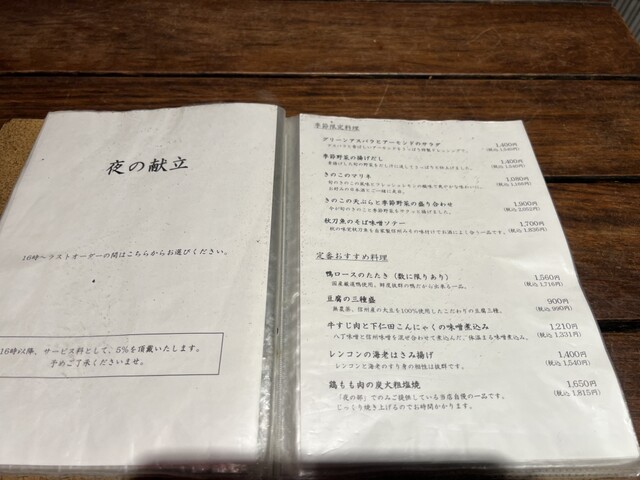 夜の献立
16時～ラストオーダーの間はこちらからお選びください。
16時以降、サービス料として、5%を頂戴いたします。
予めご了承くださいませ。
季節限定料理
グリーンアスパラとアーモンドのサラダ
1,400円
季節野菜の揚げだし
1,400円
きのこのマリネ
1,080円
きのこの天ぷらと季節野菜の盛り合わせ
1,900円
秋刀魚のそば味噌ソテー
1,700円
定番おすすめ料理
鴨ロースのたたき（数に限りあり）
1,560円
国産厳選鴨使用。鮮度抜群の鴨だから出来る一品。
(税込 1,716円)
豆腐の三種盛
900円
無農薬、信州産の大豆を100%使用したこだわりの豆腐三種。
(税込 990円)
牛すじ肉と下仁田こんにゃくの味噌煮込み
1,210円
八丁味噌と信州味噌を混ぜ合わせて煮込んだ、体温まる味噌煮込み。
(税込 1,331円)
レンコンの海老はさみ揚げ
1,400円
レンコンと海老のすり身の相性は抜群です。
(税込 1,540円)
鶏もも肉の炭火粗塩焼
1,650円
「夜の部」でのみご提供している当店自慢の一品です。
(税込 1,815円)
じっくり焼き上げるのでお時間かかります。